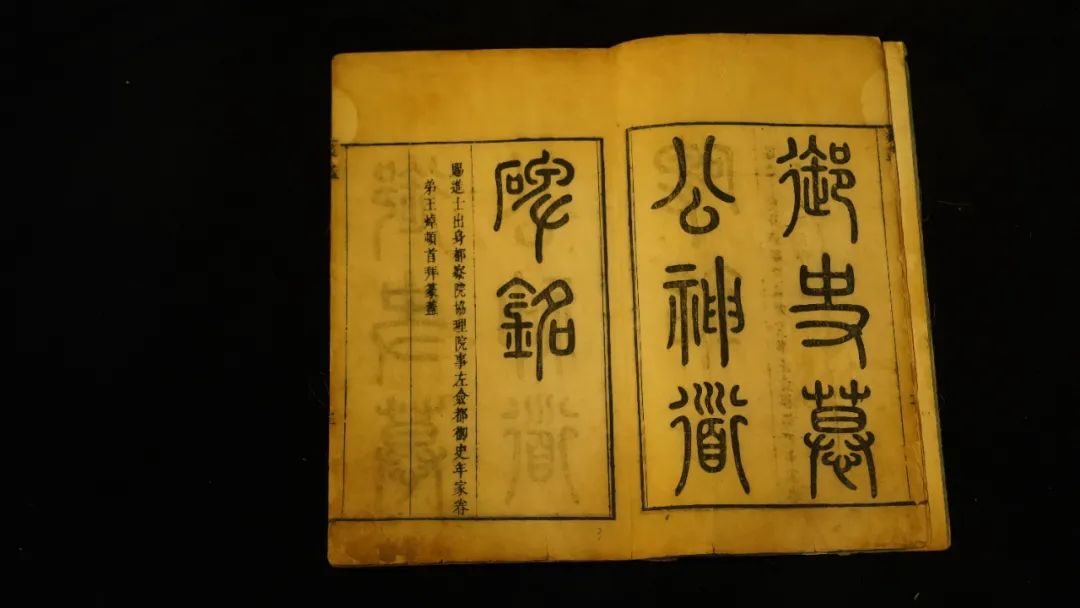 御史慕
公神道
碑銘
賜進士出身都察院協理院事左僉都御史年家眷
弟王焯頓首拜篆蓋